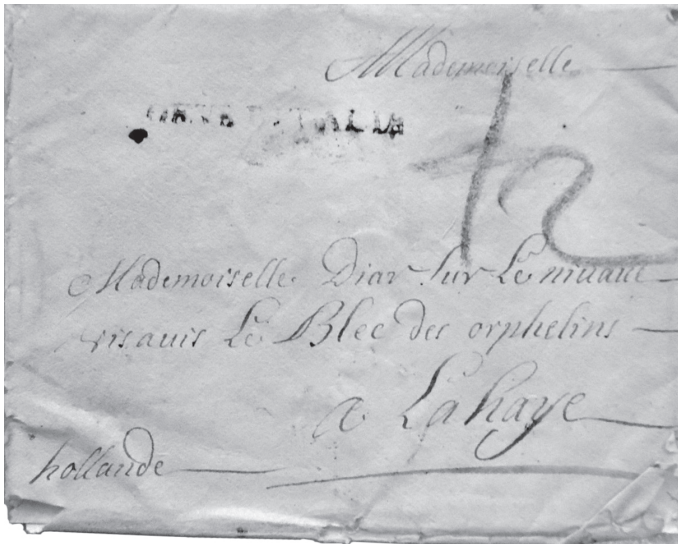 Mademoiselle
12
Mademoiselle Diar Sur Le
visavis Le Blee des orphelins
a Lahaye
hollande